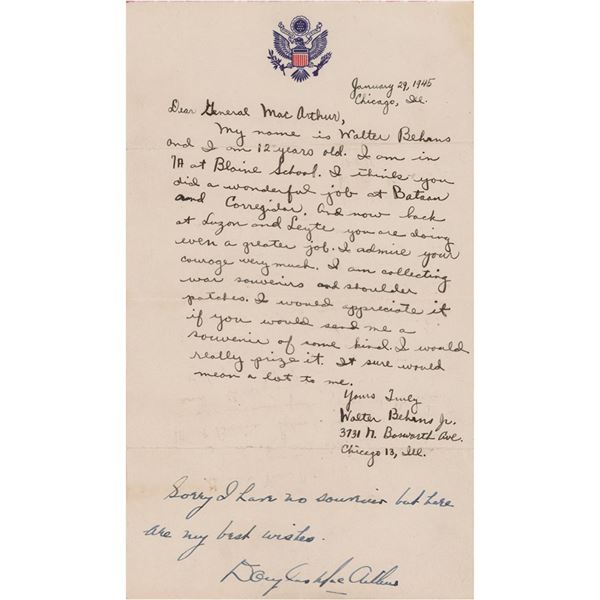 January 29, 1945
Chicago, Ill.
Dear General Mac Arthur,
My name is Walter Behans
and I am 12 years old. I am in
7A at Blaine School. I think you
did a wonderful job at Bataan
and Corregidor. And now back
at Luzon and Leyte you are doing
even a greater job. I admire your
courage very much. I am collecting
war souvenirs and shoulder
patches. I would appreciate it
if you would send me a
souvenir of some kind. I would
really prize it. It sure would
mean a lot to me.
Yours Truly
Walter Behans Jr.
3731 N. Bosworth Ave.
Chicago 13, Ill.
Sorry I have no souvenir but here
are my best wishes.
Douglas MacArthur